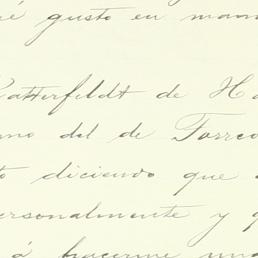 é gusto en man
Katterfeldt de Ha
mo del de Torreo
to diciendo que
ersonalmente y q
á hacerme una